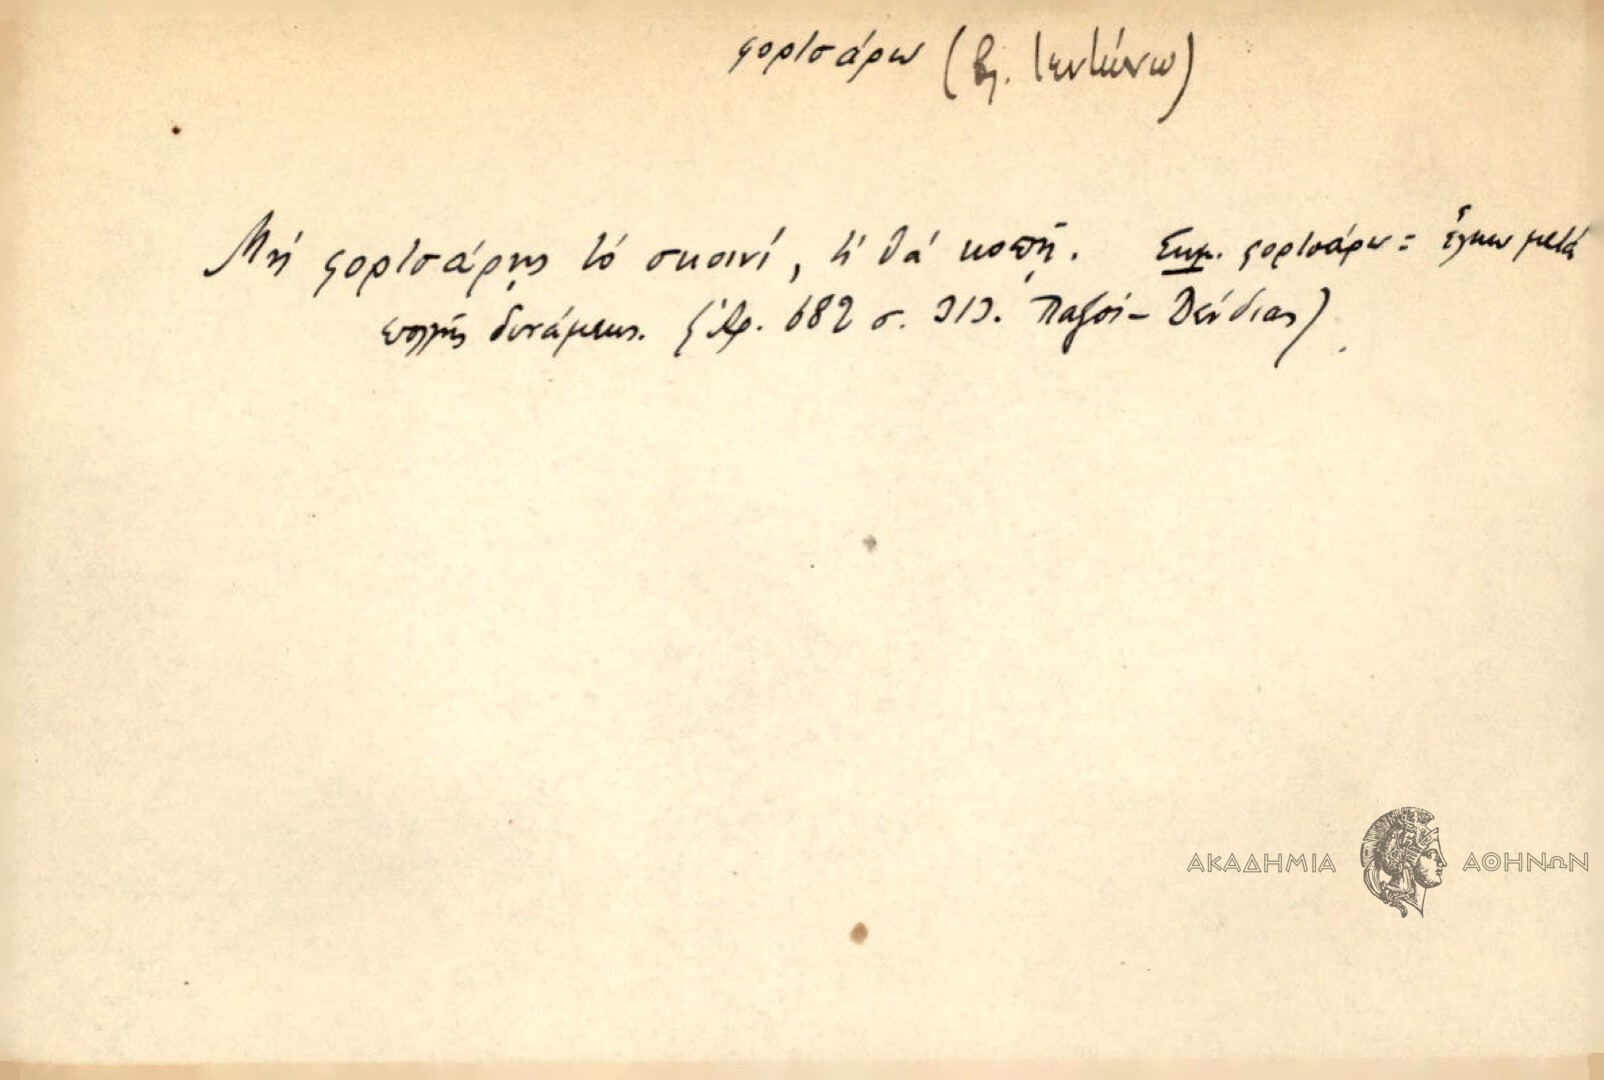 φορτσάρω (βλ. τεντώνω)
Μή φορτσάρῃς τό σκοινί, τί θά κοπῇ. Σημ. φορτσάρω = ἕλκω μετά
πολλῆς δυνάμεως. (Ἀρ. 682 σ. 313. Παξοί - Δένδιας)
ΑΚΑΔΗΜΙΑ ΑΘΗΝΩΝ